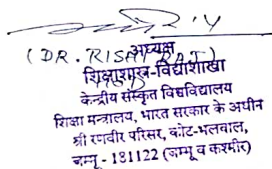 (DR. RISHI RAJ)
अध्यक्ष
शिक्षाशास्त्र-विद्याशाखा
केन्द्रीय संस्कृत विश्वविद्यालय
शिक्षा मन्त्रालय, भारत सरकार के अधीन
श्री रणवीर परिसर, कोट-भलवाल,
जम्मू - 181122 (जम्मू व कश्मीर)